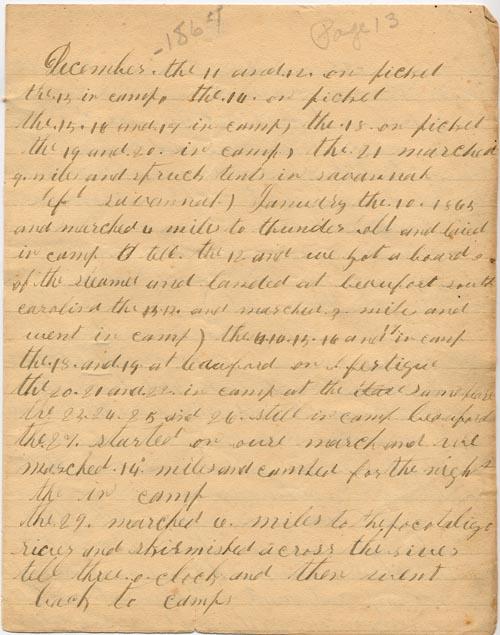 -1864
Page 13
December. the 11 and .12. on picket
the.13 in camp, the.14. on picket
the.15. 16 and .17 in camp, the.18. on picket
the 19 and .20. in camp, the .21 marched
9. mile and struck tents in savannah
left savannah) January the .10. 1865
and marched 6 miles to thunder and
in camp tell. the 12 and we got a board
of the steamer and landed at beaufort south
carolina the and marched mile and
went in camp) the 15. 16 and 17 in camp
the.18. and 19 at beauford on fertigue
the 20. 21 and 22. in camp at the same
the 23. 24. 25 and 26. still in camp beauford
the 27. started on oure march and we
marched .14. miles and camted for the night
the in camp
the 29. marched 6. miles to the pocotaligo
river and skirmished across the river
tell three.o.clock and then went
back to camp